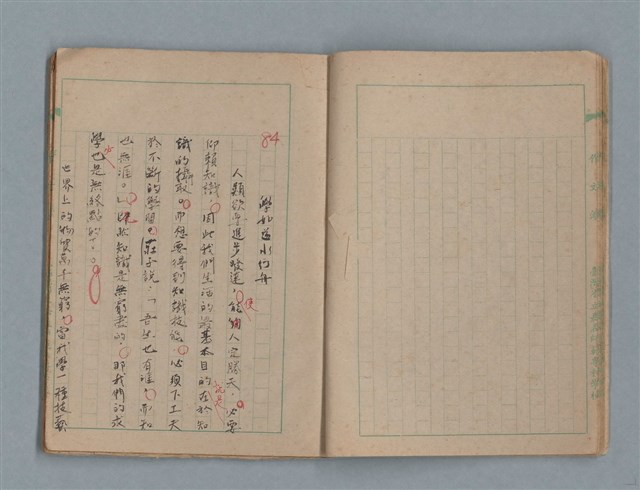 84
學如逆水行舟
人類欲要進步發達，能個人定勝天，必要
使
仰賴知識。因此我們生活的最基本目的在於知
就是
識的攝取。而想要得到知識技能，必須下工夫
於不斷的學習。莊子說：「吾生也有涯，而知
也無涯。」既然知識是無窮盡的，那我們的求
學也是無終點的了。
世界上的物質萬千無窮，當我學一種技藝